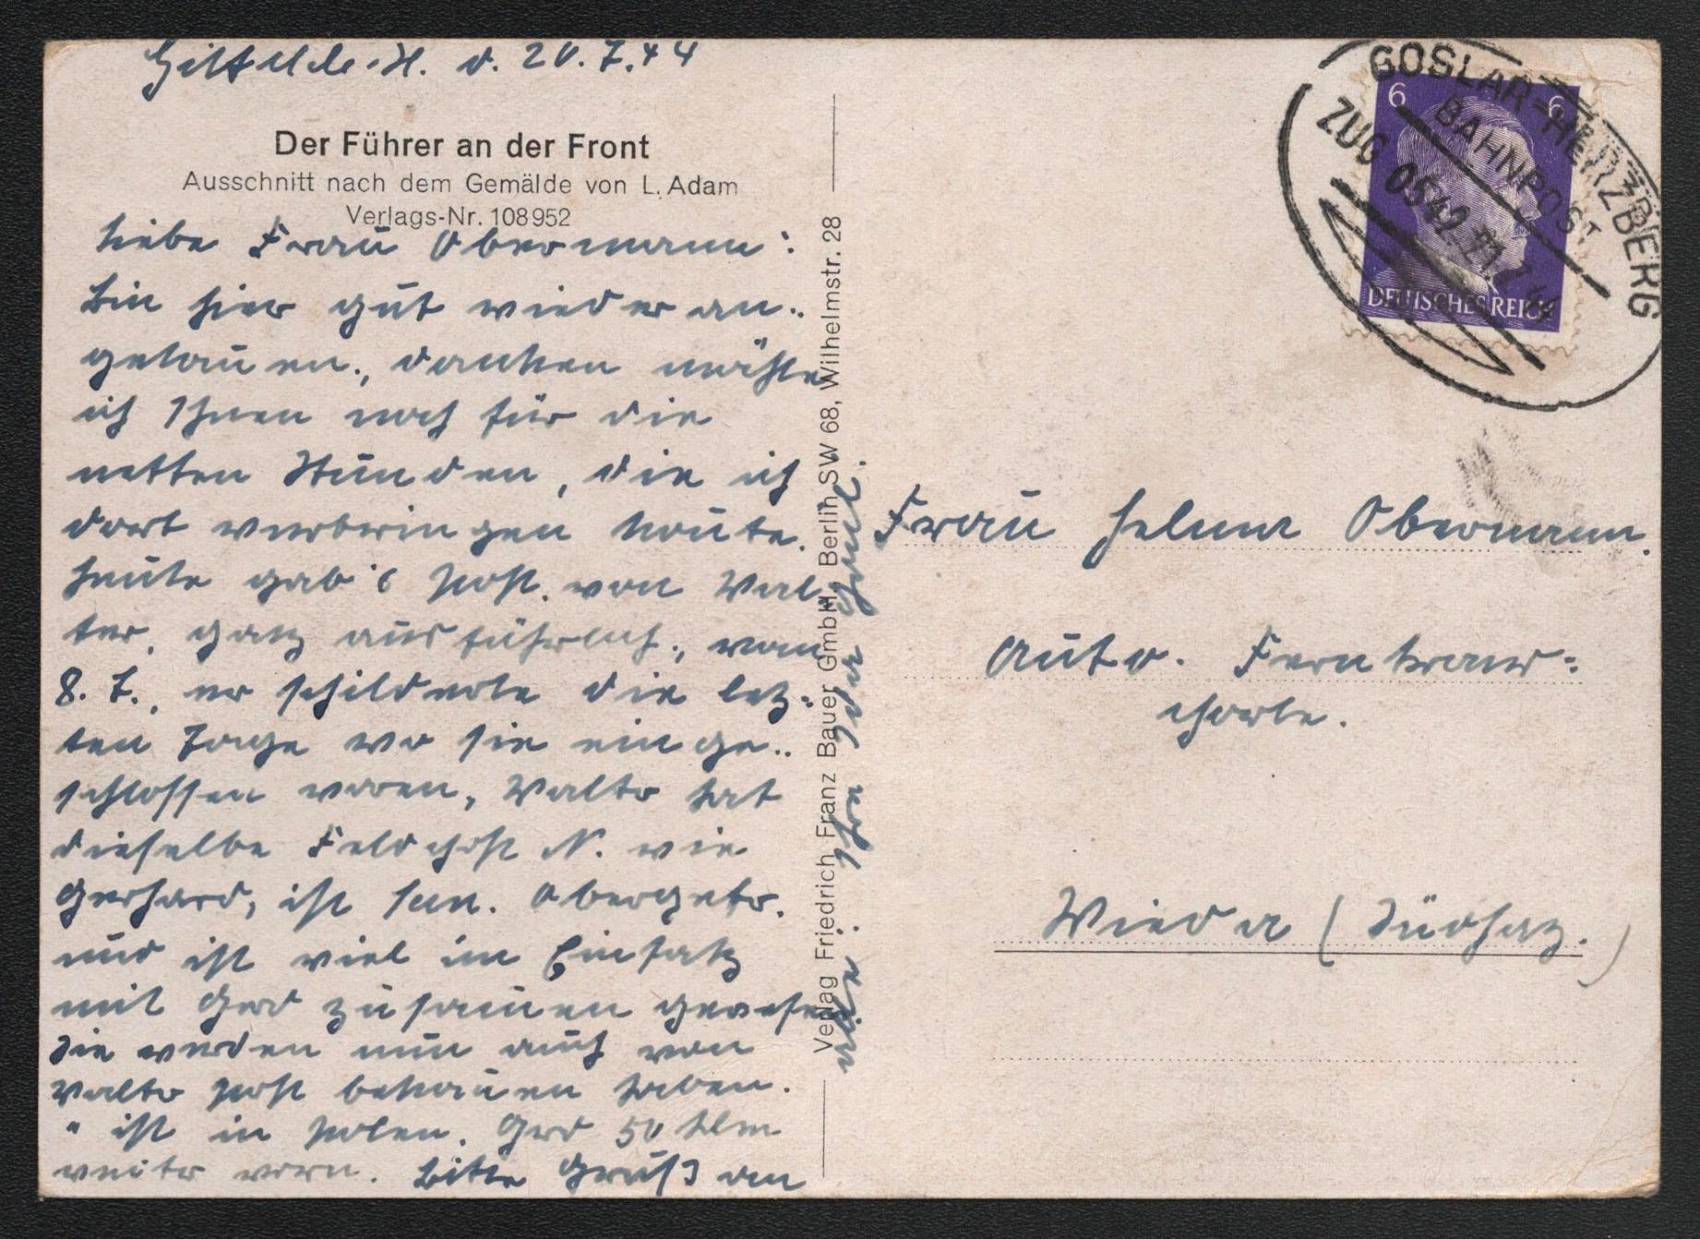 Gittelde-H. d. 20.7.44
Der Führer an der Front
Ausschnitt nach dem Gemälde von L. Adam
Verlags-Nr. 108952
Liebe Frau Obermann:
Bin hier gut wieder an-
gekomen., danken möchte
ich Ihnen noch für die
netten Stunden, die ich
dort verbringen konte.
Heute gab's Post. von Wal-
ter, ganz ausführlich., vom
8. 7., er schilderte die letz-
ten Tage wo sie einge-
schlossen waren, Walter hat
dieselbe Feldpost N. wie
Gerhard, ist San. Obergefr.
und ist viel im Einsatz
mit Gerd zusamen gewesen
Sie werden nun auch von
Walter Post bekomen haben.
" ist in Polen. Gerd 50 klm
weiter vorn. Bitte Gruß an
alle. Ihre Ida
Verlag Friedrich Franz Bauer GmbH. Berlin SW 68, Wilhelmstr. 28
GOSLAR-HERZBERG
BAHNPOST
ZUG 0542 21.7.44
6 6
DEUTSCHES REICH
Frau Helma Obermann.
Auto. Fernkraw-
Wieda (Südharz.)